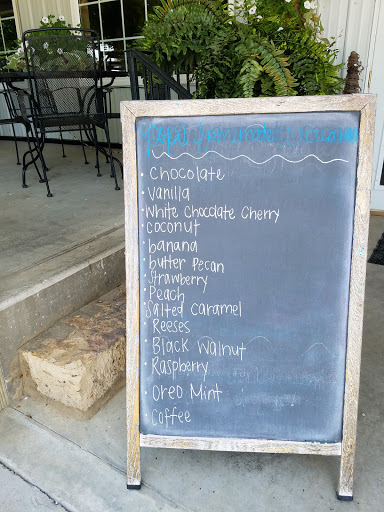 • Chocolate
• Vanilla
• White Chocolate Cherry
• Coconut
• banana
• butter Pecan
• Strawberry
• Peach
• Salted Caramel
• Reeses
• Black Walnut
• Raspberry
• Oreo Mint
• Coffee